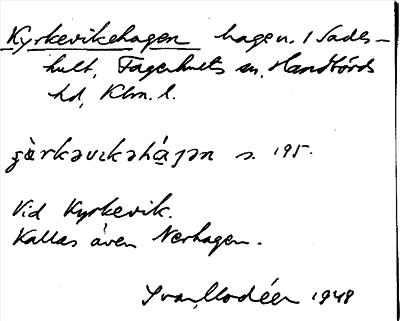 Kyrkevikehagen hagen. i Sades-
hult, Fagerhults sn, Handbörds
hd, Klm. l.
s. 195.
Vid Kyrkevik.
Kallas även Nerhagen.
Ivar Modéer 1948